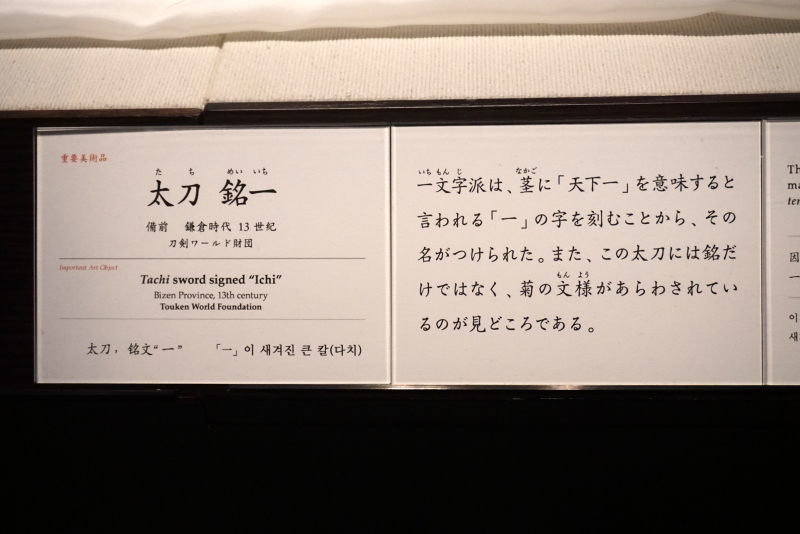 重要美術品
たち めい いち
太刀 銘一
備前 鎌倉時代 13世紀
刀剣ワールド財団
Important Art Object
Tachi sword signed “Ichi”
Bizen Province, 13th century
Touken World Foundation
太刀，铭文“一” 「一」이 새겨진 큰 칼(다치)
いちもんじ なかご
一文字派は、茎に「天下一」を意味すると
言われる「一」の字を刻むことから、その
名がつけられた。また、この太刀には銘だ
もんよう
けではなく、菊の文様があらわされてい
るのが見どころである。
Th
ma
ten
因
一
이
새